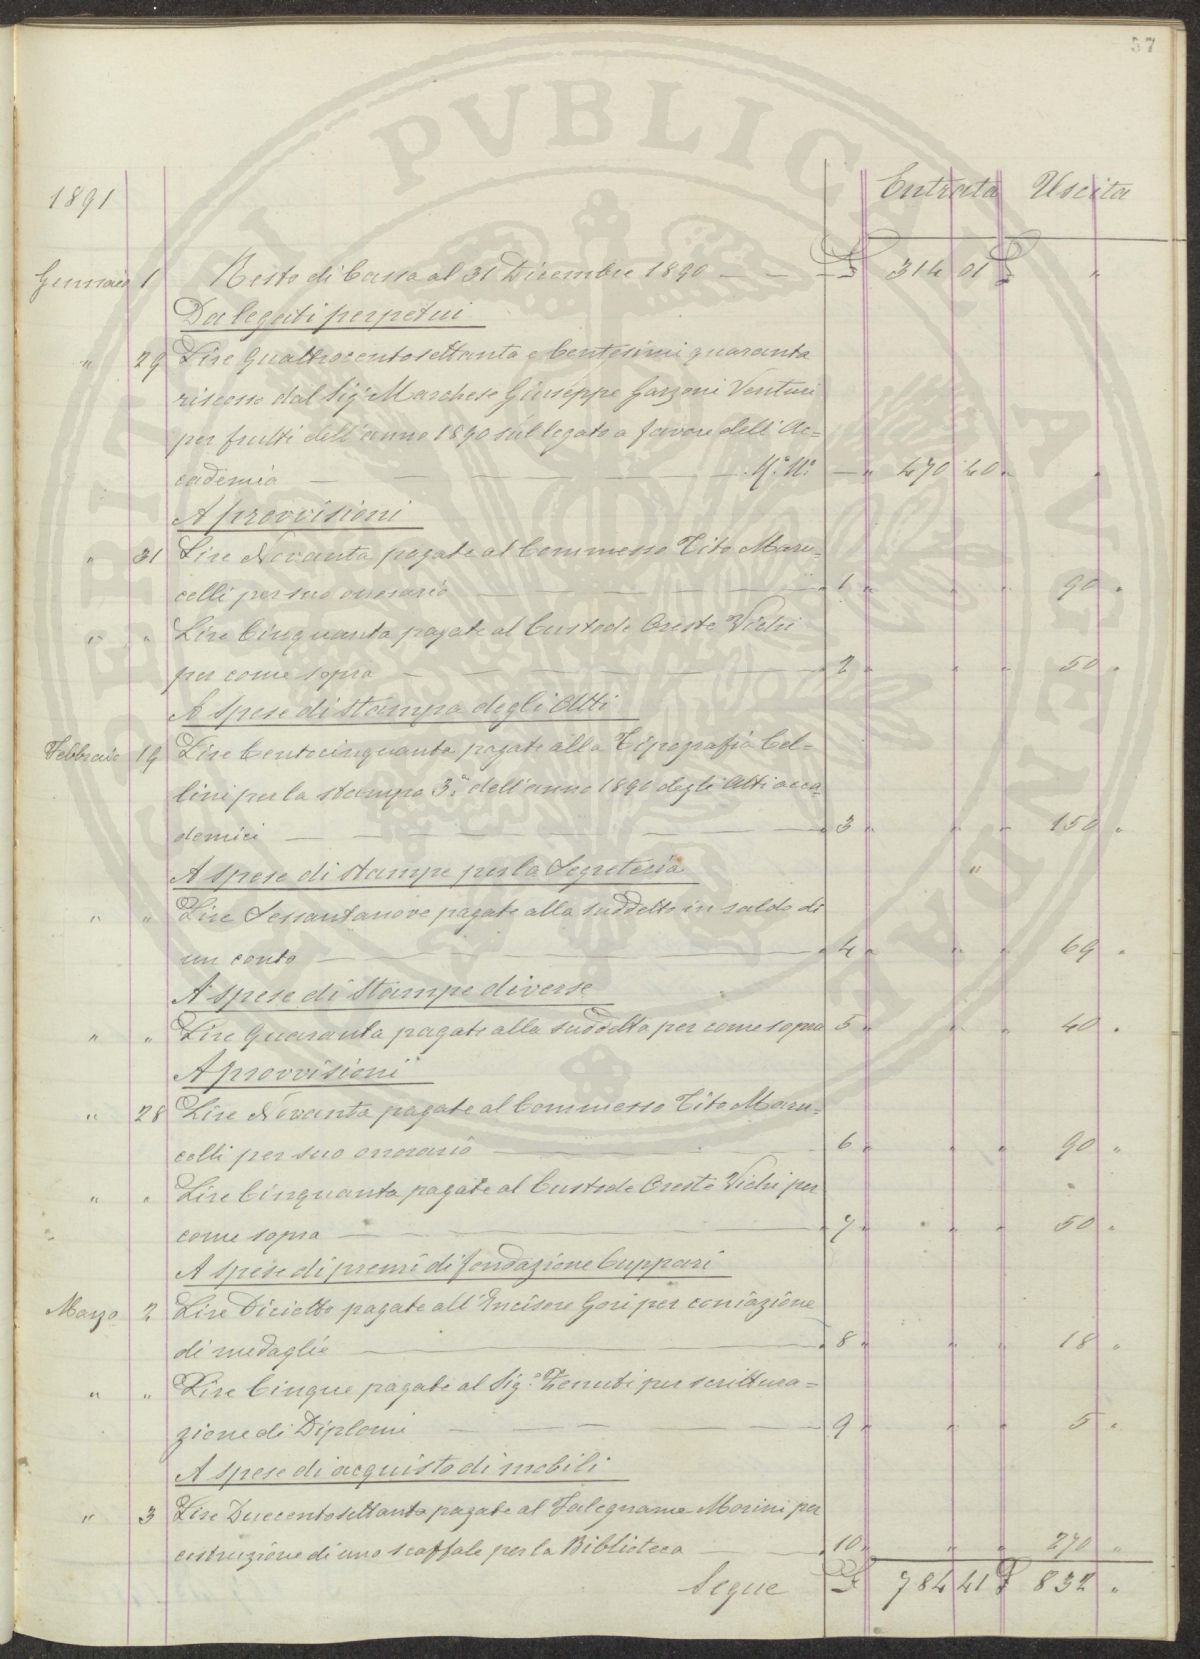 57
1891 Entrata Uscita
Gennaio 1 Resto di Cassa al 31 Dicembre 1890 — — £ 314 01 £ "
Da legati perpetui
" 29 Lire Quattrocentosettanta e Centesimi quaranta
riscosse dal Sig. Marchese Giuseppe Garzoni Venturi
per frutti dell'anno 1890 sul legato a favore dell'Ac=
cademia — — — — — — — " 470 40 " "
A provvisioni
" 31 Lire Novanta pagate al Commesso Tito Maru=
celli per suo onorario — — — 1 " " " 90 "
" " Lire Cinquanta pagate al Custode Oreste Vichi
per come sopra — — — — 2 " " " 50 "
A spese di stampa degli Atti
Febbraio 19 Lire Centocinquanta pagate alla Tipografia Cel=
lini per la stampa 3ª dell'anno 1890 degli Atti acca=
demici — — — — — 3 " " " 150 "
A spese di stampe per la Segreteria "
" " Lire Sessantanove pagate alla suddetta in saldo di
un conto — — — — 4 " " " 69 "
A spese di stampe diverse
" " Lire Quaranta pagate alla suddetta per come sopra 5 " " " 40 "
A provvisioni
" 28 Lire Novanta pagate al Commesso Tito Maru=
celli per suo onorario — — — 6 " " " 90 "
" " Lire Cinquanta pagate al Custode Oreste Vichi per
come sopra — — — — 7 " " " 50 "
A spese di premi di fondazione Cuppari
Marzo 2 Lire Diciotto pagate all'Incisore Gori per coniazione
di medaglie — — — — 8 " " " 18 "
" " Lire Cinque pagate al Sig. Zenuti per scrittura=
zione di Diplomi — — — 9 " " " 5 "
A spese di acquisto di mobili
" 3 Lire Duecentosettanta pagate al Falegname Morini per
costruzione di uno scaffale per la Biblioteca — 10 " " " 270 "
Segue £ 784 41 £ 832 "